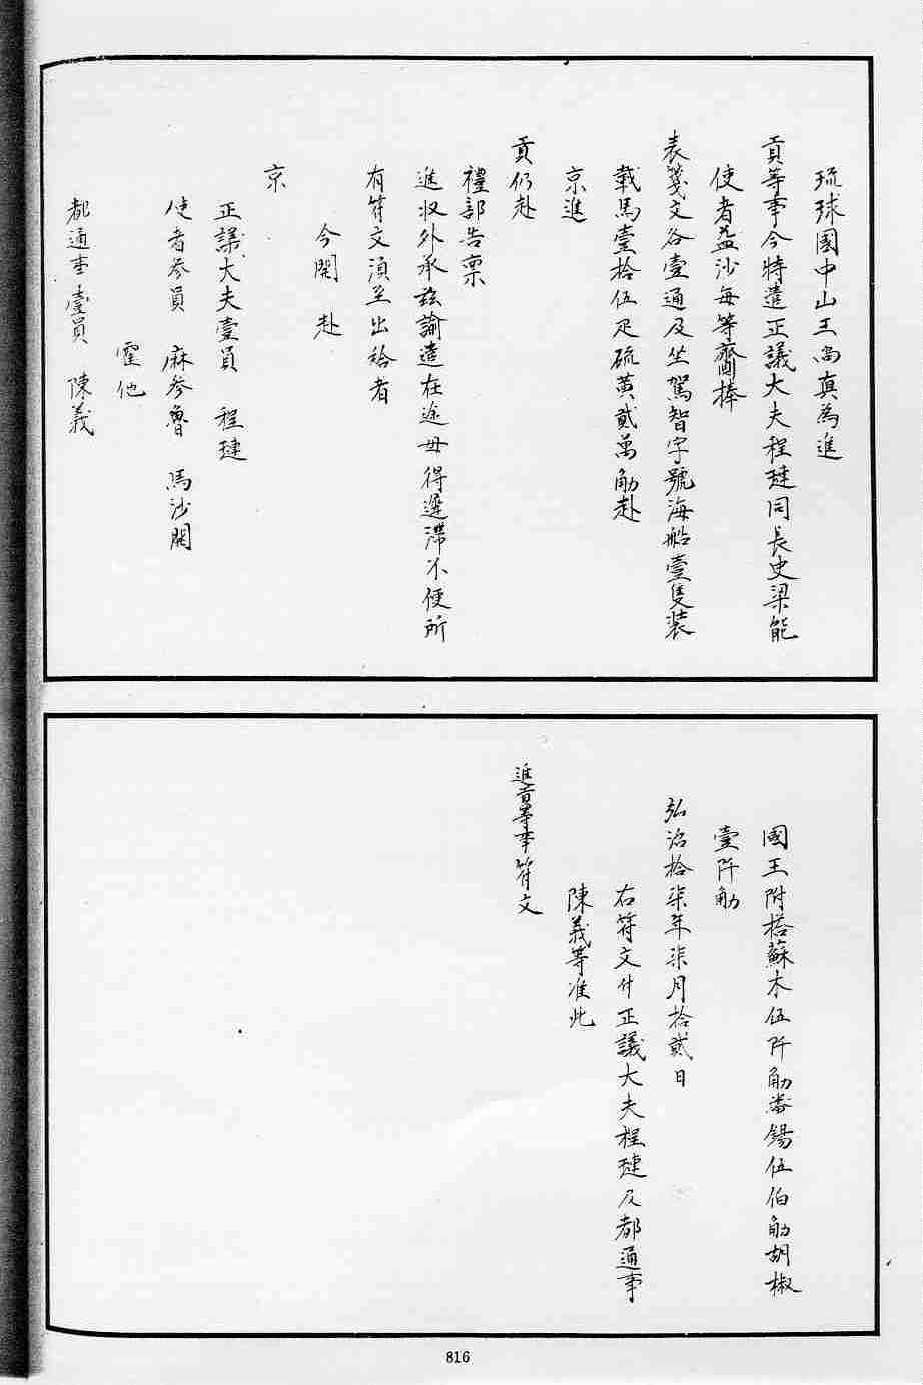 琉球國中山王尚真為進
貢等事今特遣正議大夫程璉同長史梁能
使者益沙每等齎捧
表箋文各壹通及坐駕智字號海船壹隻裝
載馬壹拾伍疋硫黃貳萬觔赴
京進
貢仍赴
禮部告稟
進收外承玆諭遣在途毋得遲滯不便所
有符文須至出給者
今開赴
京
正議大夫壹員 程璉
使者參員 麻參魯 馬沙開
霍他
都通事壹員 陳義
國王附搭蘇木伍阡觔番錫伍伯觔胡椒
壹阡觔
弘治拾柒年柒月拾貳日
右符文付正議大夫程璉及都通事
陳義等准此
進貢等事符文
816